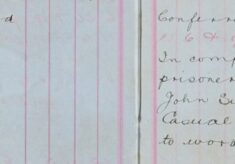 d
Conferr
In comp
prisoner
John Su
Casual
to word